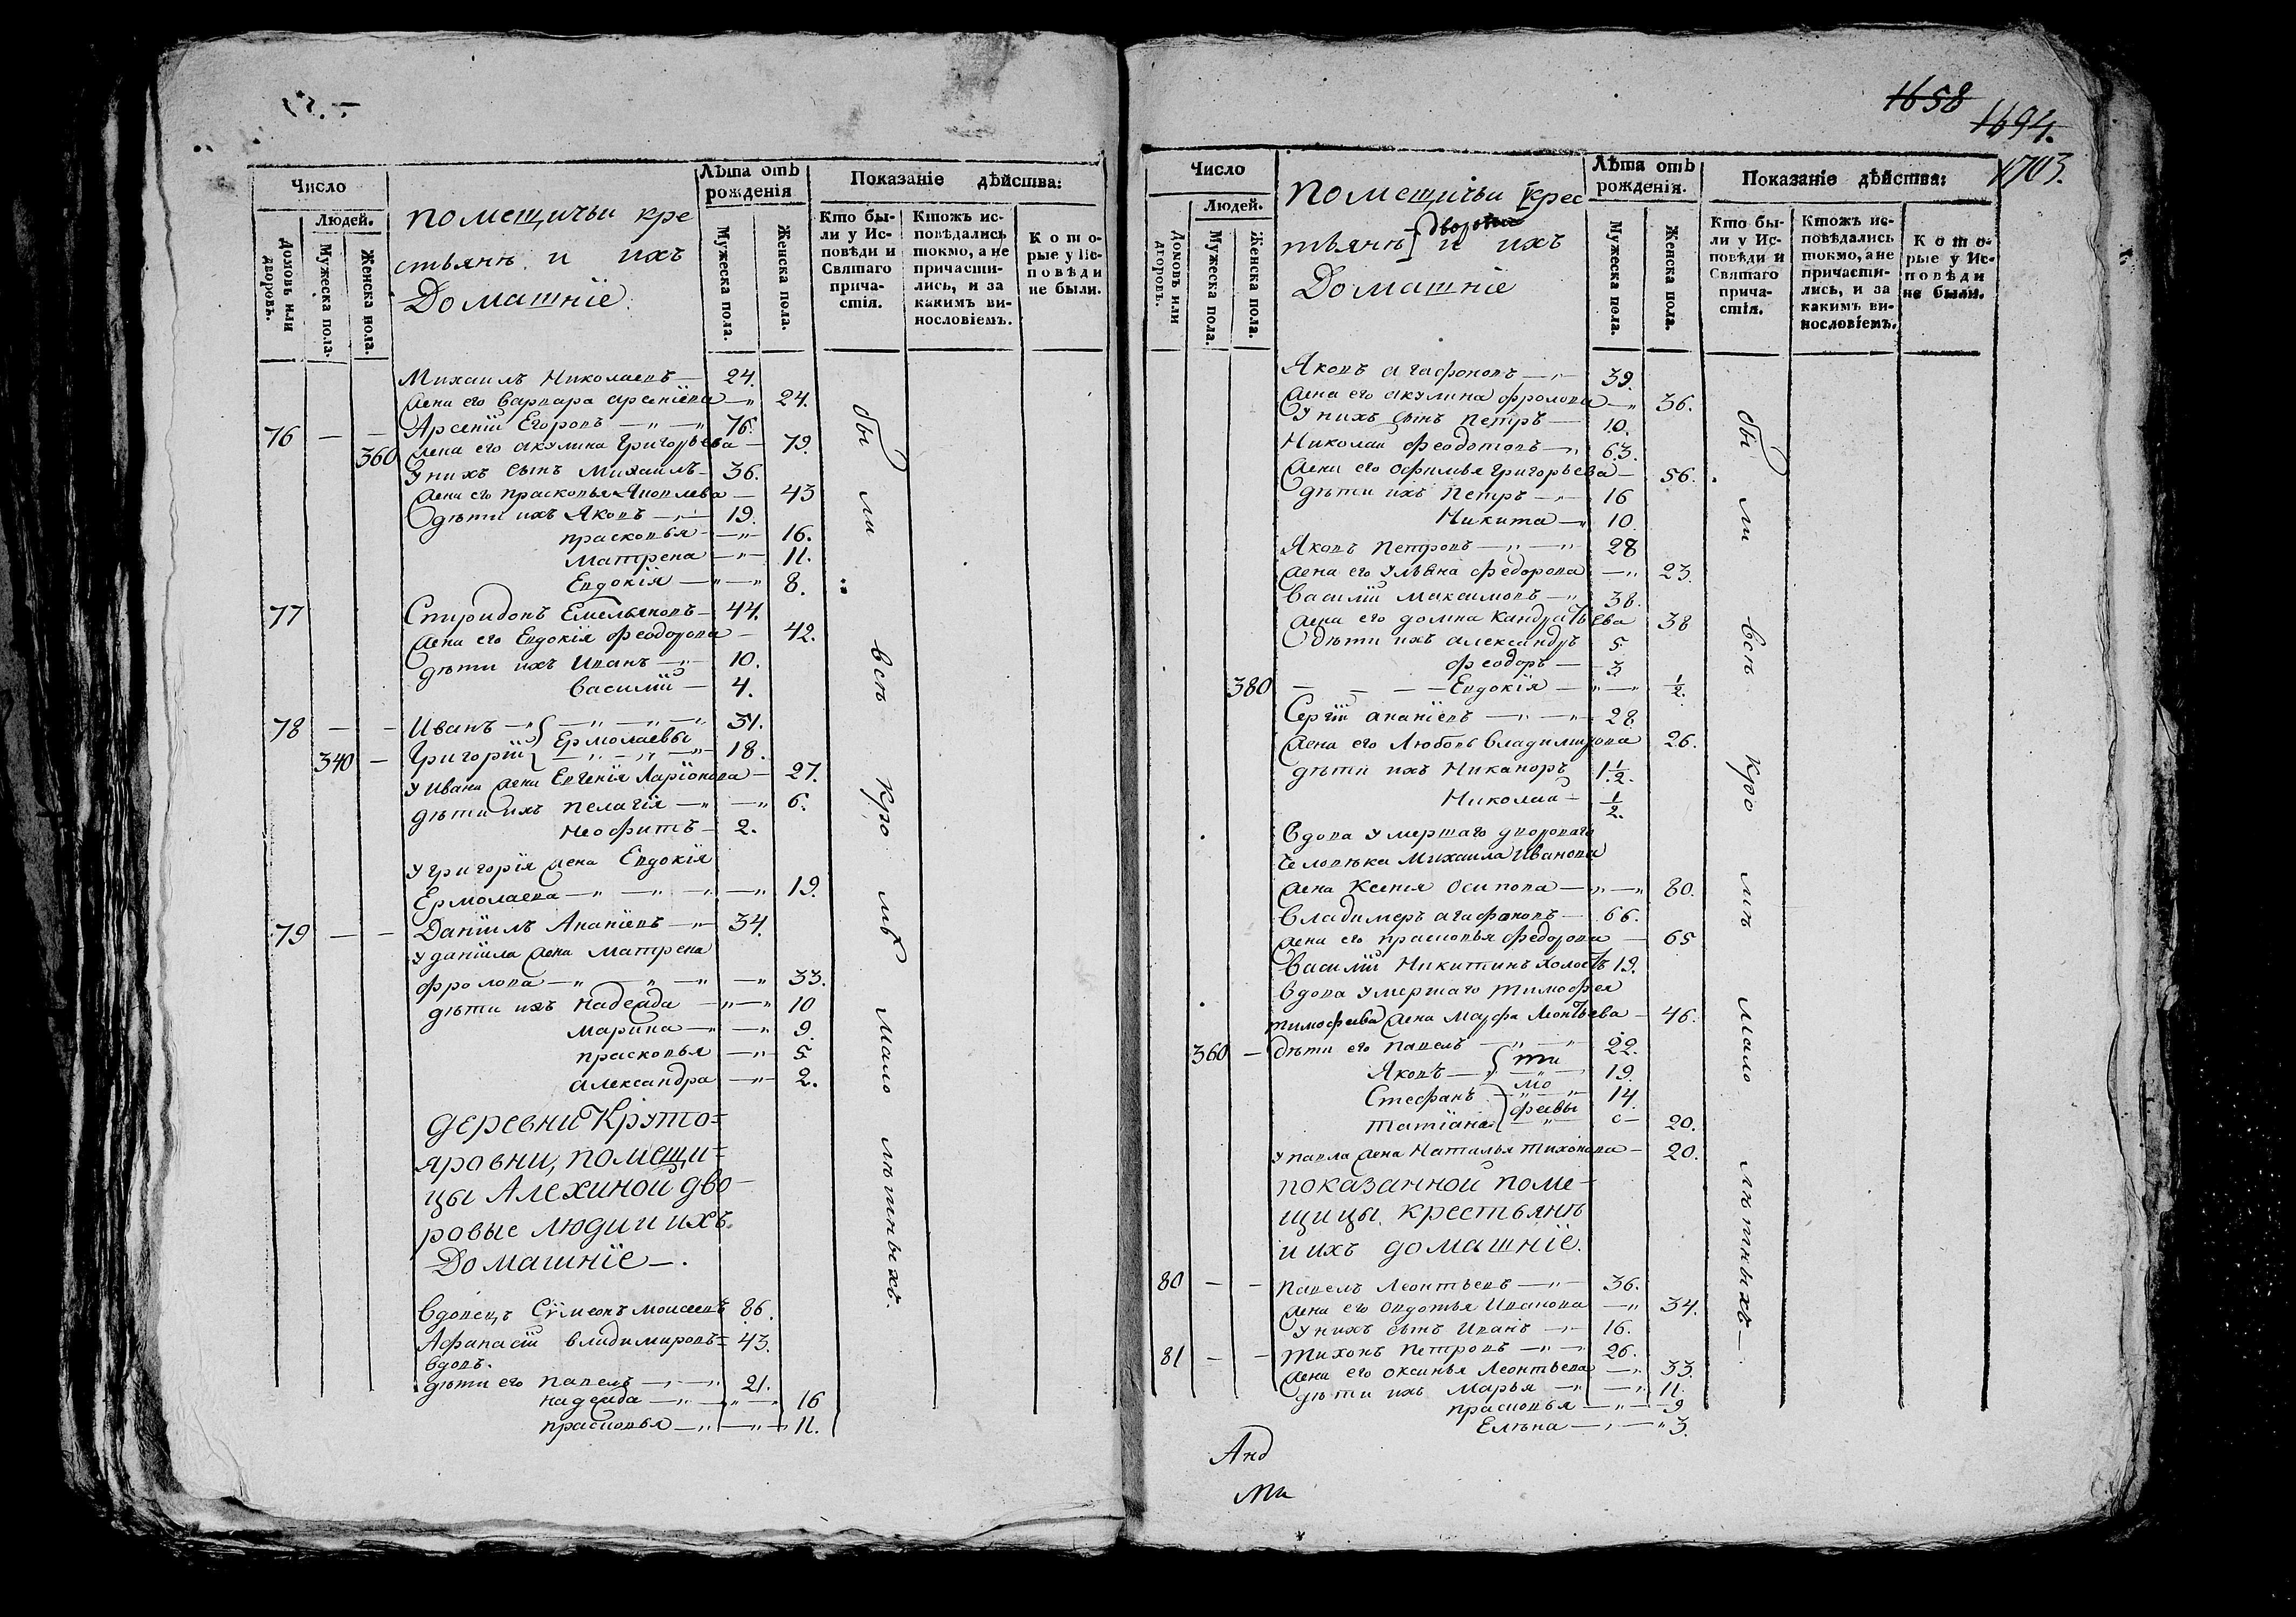 Число
Людей.
Домовъ или дворовъ.
Мужеска пола.
Женска пола.
помещичьи кре
стьянѣ и ихъ
Домашніе.
Лѣта отъ рожденія
Мужеска пола.
Женска пола.
Показаніе дѣйства:
Кто бы-
ли у Ис-
повѣди и
Святаго
прича-
стія.
Ктожъ ис-
повѣдались
токмо, а не
причасти-
лись, и за
какимъ ви-
нословіемъ.
Кото-
рые у Ис-
повѣди
не были.
Михаилъ Николаевъ — 24.
жена его Варвара Арсеніева — 24.
76 — — Арсеній Егоровъ — 76.
360 жена его Акулина Григорьева — 79.
У нихъ сынъ Михаилъ — 36.
жена его Прасковья Яковлева — 43
дѣти ихъ Яковъ — 19.
Прасковья — 16.
Матрена — 11.
Евдокія — 8.
77 Спиридонъ Емельяновъ — 44.
жена его Евдокія Феодорова — 42.
дѣти ихъ Иванъ — 10.
Василій — 4.
78 — — Иванъ — Ермолаевы 31.
340 — Григорій — 18.
У Ивана жена Евгенія Ларіонова — 27.
дѣти ихъ Пелагія — 6.
Неофитъ — 2.
У Григорія жена Евдокія
Ермолаева — 19.
79 — — Даніилъ Ананіевъ — 34.
У Даніила жена Матрена
Фролова — 33.
дѣти ихъ Надежда — 10
Марина — 9.
Прасковья — 5
Александра — 2.
деревни Круто=
яровни, помещи=
цы Алехиной дво-
ровые люди и ихъ
Домашніе —.
Вдовецъ Сѵмеонъ Моисеевъ 86.
Афанасій Владимировъ = 43.
вдовъ.
дѣти его Павелъ — 21.
Надежда — 16
Прасковья — 11.
бы ли всѣ кро мѣ мало лѣтныхъ.
1658
1694.
1703.
Число
Людей.
Домовъ или дворовъ.
Мужеска пола.
Женска пола.
помещичьи крес
дворовые
тьянѣ и ихъ
Домашніе
Лѣта отъ рожденія.
Мужеска пола.
Женска пола.
Показаніе дѣйства:
Кто бы-
ли у Ис-
повѣди и
Святаго
прича-
стія.
Ктожъ ис-
повѣдались
токмо, а не
причасти-
лись, и за
какимъ ви-
нословіемъ.
Кото-
рые у Ис-
повѣди
не были.
Яковъ Агафоновъ — 39.
жена его Акулина Фролова — 36.
У нихъ сынъ Петръ — 10.
Николай Феодотовъ — 63.
жена его Офимья Григорьева — 56.
дѣти ихъ Петръ — 16
Никита — 10.
Яковъ Петровъ — 28
жена его Ульяна Федорова — 23.
Василій Максимовъ — 38.
жена его Домна Кандратьева 38
дѣти ихъ Александръ 5
Феодоръ — 3
380 — — — Евдокія — 1/2.
Сергій Ананіевъ — 28
жена его Любовь Владимирова 26.
дѣти ихъ Никаноръ 1 1/2.
Николай — 1/2.
Вдова умершаго дворонаго
человѣка Михаила Иванова
жена Ксенія Осипова — 80.
Владимеръ Агафоновъ — 66.
жена его Прасковья Федорова — 65
Василій Никитинъ холостъ 19.
Вдова умершаго Тимофея
Тимофеева жена Марфа Леонтьева — 46.
360 — дѣти его Павелъ — 22.
Яковъ — Ти 19.
Стефанъ мо 14.
Татіана феевы 20.
У Павла жена Наталья Тихонова — 20.
показанной поме-
щицы крестьянѣ
и ихъ домашніе.
80 — — Павелъ Леонтьевъ — 36.
жена его Овдотья Иванова — 34.
У нихъ сынъ Иванъ — 16.
81 — — Тихонъ Петровъ — 26.
жена его Оксинья Леонтьева — 33.
дѣти ихъ Марья — 11.
Прасковья — 9
Елѣна — 3.
бы ли всѣ кро мѣ мало лѣтныхъ —
Анд
Ми